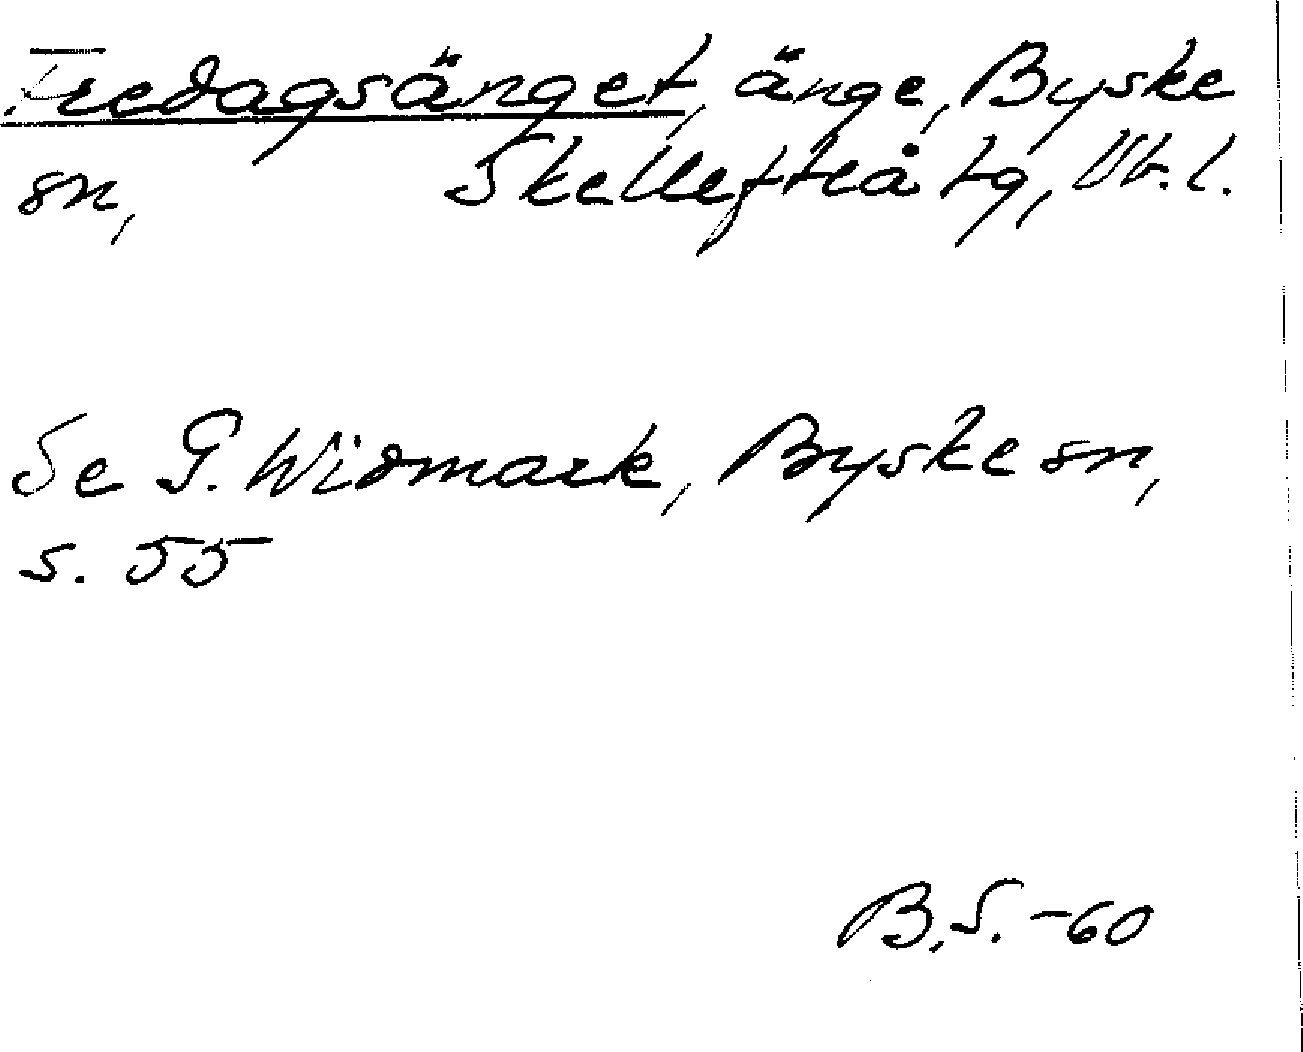 Fredagsänget, änge, Byske
sn, Skellefteå tg, Vb. l.
Se G. Widmark, Byske sn,
s. 55
B.S. -60